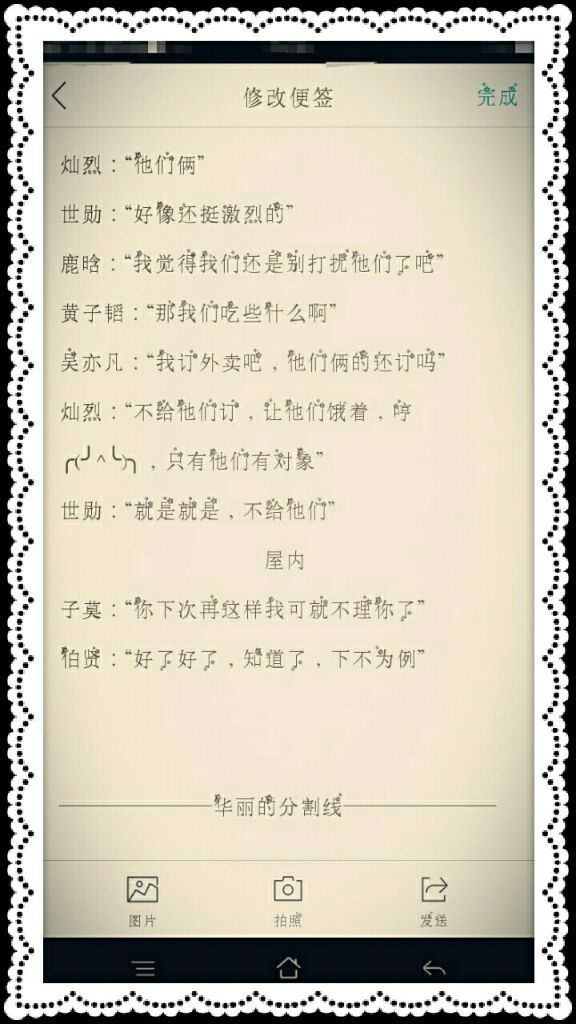 修改便签
完成
灿烈：“他们俩”
世勋：“好像还挺激烈的”
鹿晗：“我觉得我们还是别打扰他们了吧”
黄子韬：“那我们吃些什么啊”
吴亦凡：“我订外卖吧，他们俩的还订吗”
灿烈：“不给他们订，让他们饿着，哼
╭(╯^╰)╮，只有他们有对象”
世勋：“就是就是，不给他们”
屋内
子莫：“你下次再这样我可就不理你了”
伯贤：“好了好了，知道了，下不为例”
华丽的分割线
图片
拍照
发送